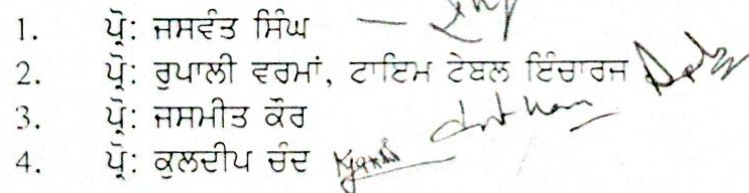 1. ਪ੍ਰੋ: ਜਸਵੰਤ ਸਿੰਘ
2. ਪ੍ਰੋ: ਰੁਪਾਲੀ ਵਰਮਾਂ, ਟਾਇਮ ਟੇਬਲ ਇੰਚਾਰਜ
3. ਪ੍ਰੋ: ਜਸਮੀਤ ਕੌਰ
4. ਪ੍ਰੋ: ਕੁਲਦੀਪ ਚੰਦ